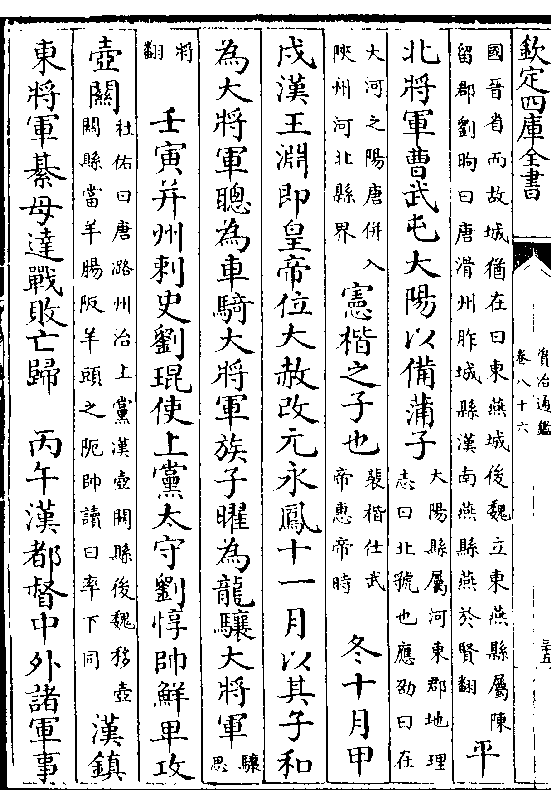 欽定四庫全書
資治通鑑
卷八十六
國晉省而故城猶在曰東燕城後魏立東燕縣屬陳
留郡劉昫曰唐滑州胙城縣漢南燕縣燕於賢翻
平
北將軍曹武屯大陽以備蒲子
大陽縣屬河東郡地理
志曰北虢也應劭曰在
大河之陽唐併入
陜州河北縣界
憲楷之子也
裴楷仕武
帝惠帝時
冬十月甲
戌漢王淵即皇帝位大赦改元永鳳十一月以其子和
為大將軍聰為車騎大將軍族子曜為龍驤大將軍
驤思
將翻
壬寅并州刺史劉琨使上黨太守劉惇帥鮮卑攻
壺關
杜佑曰唐潞州治上黨漢壺關縣後魏移壺
關縣當羊腸阪羊頭之阨帥讀曰率下同
漢鎮
東將軍綦毋達戰敗亡歸
丙午漢都督中外諸軍事